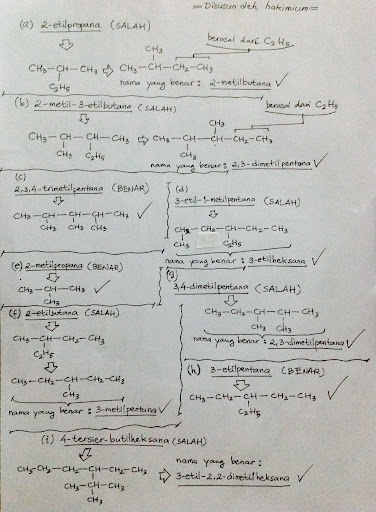 = Disusun oleh hakimium =
(a) 2-etilpropana (SALAH)
berasal dari C2H5
CH3
CH3 — CH — CH3 ⇨ CH3 — CH — CH2 — CH3
C2H5
nama yang benar : 2-metilbutana ✓
(b) 2-metil-3-etilbutana (SALAH)
berasal dari C2H5
CH3
CH3 — CH — CH — CH3 ⇨ CH3 — CH — CH — CH2 — CH3
CH3 C2H5
CH3
nama yang benar : 2,3-dimetilpentana ✓
(c)
2,3,4-trimetilpentana (BENAR)
CH3 — CH — CH — CH — CH3 ✓
CH3 CH3 CH3
(d)
3-etil-1-metilpentana (SALAH)
CH2 — CH2 — CH — CH2 — CH3
CH3 C2H5
nama yang benar : 3-etilheksana ✓
(e) 2-metilpropana (BENAR)
CH3 — CH — CH3 ✓
CH3
(f) 2-etilbutana (SALAH)
CH3 — CH — CH2 — CH3
C2H5
CH3 — CH — CH2 — CH3
CH3
nama yang benar : 3-metilpentana ✓
(g)
3,4-dimetilpentana (SALAH)
CH3 — CH2 — CH — CH — CH3
CH3 CH3
nama yang benar : 2,3-dimetilpentana ✓
(h) 3-etilpentana (BENAR)
CH3 — CH2 — CH — CH2 — CH3 ✓
C2H5
(i) 4-tersier-butilheksana (SALAH)
CH3-CH2-CH2-CH-CH2-CH3
CH3-C-CH3
CH3
nama yang benar :
⇨ 3-etil-2,2-dimetilheksana ✓